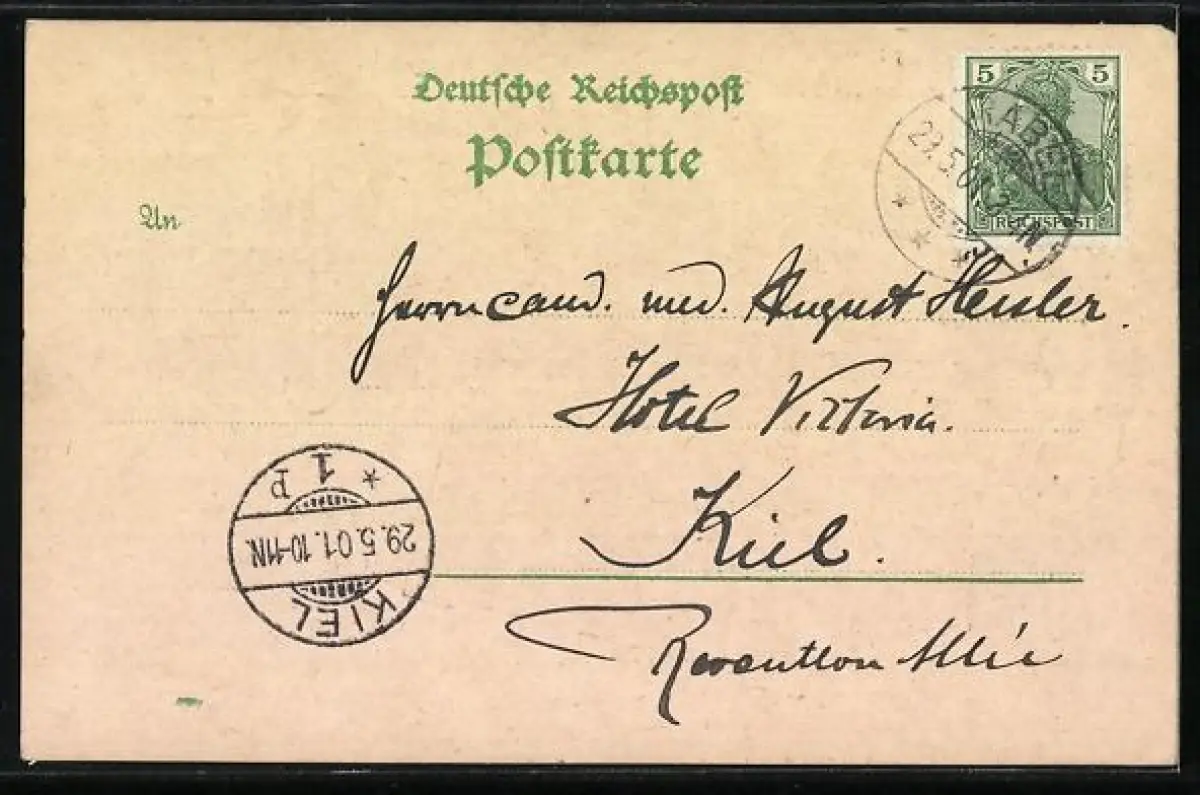 Deutsche Reichspost
Postkarte
An
5 5
REICHSPOST
KABEL
29.5.01
Herrn cand. med. August Heisler.
Hotel Viktoria.
Kiel.
Reventlou Allée
KIEL
29.5.01. 10-11N.
* 1 P